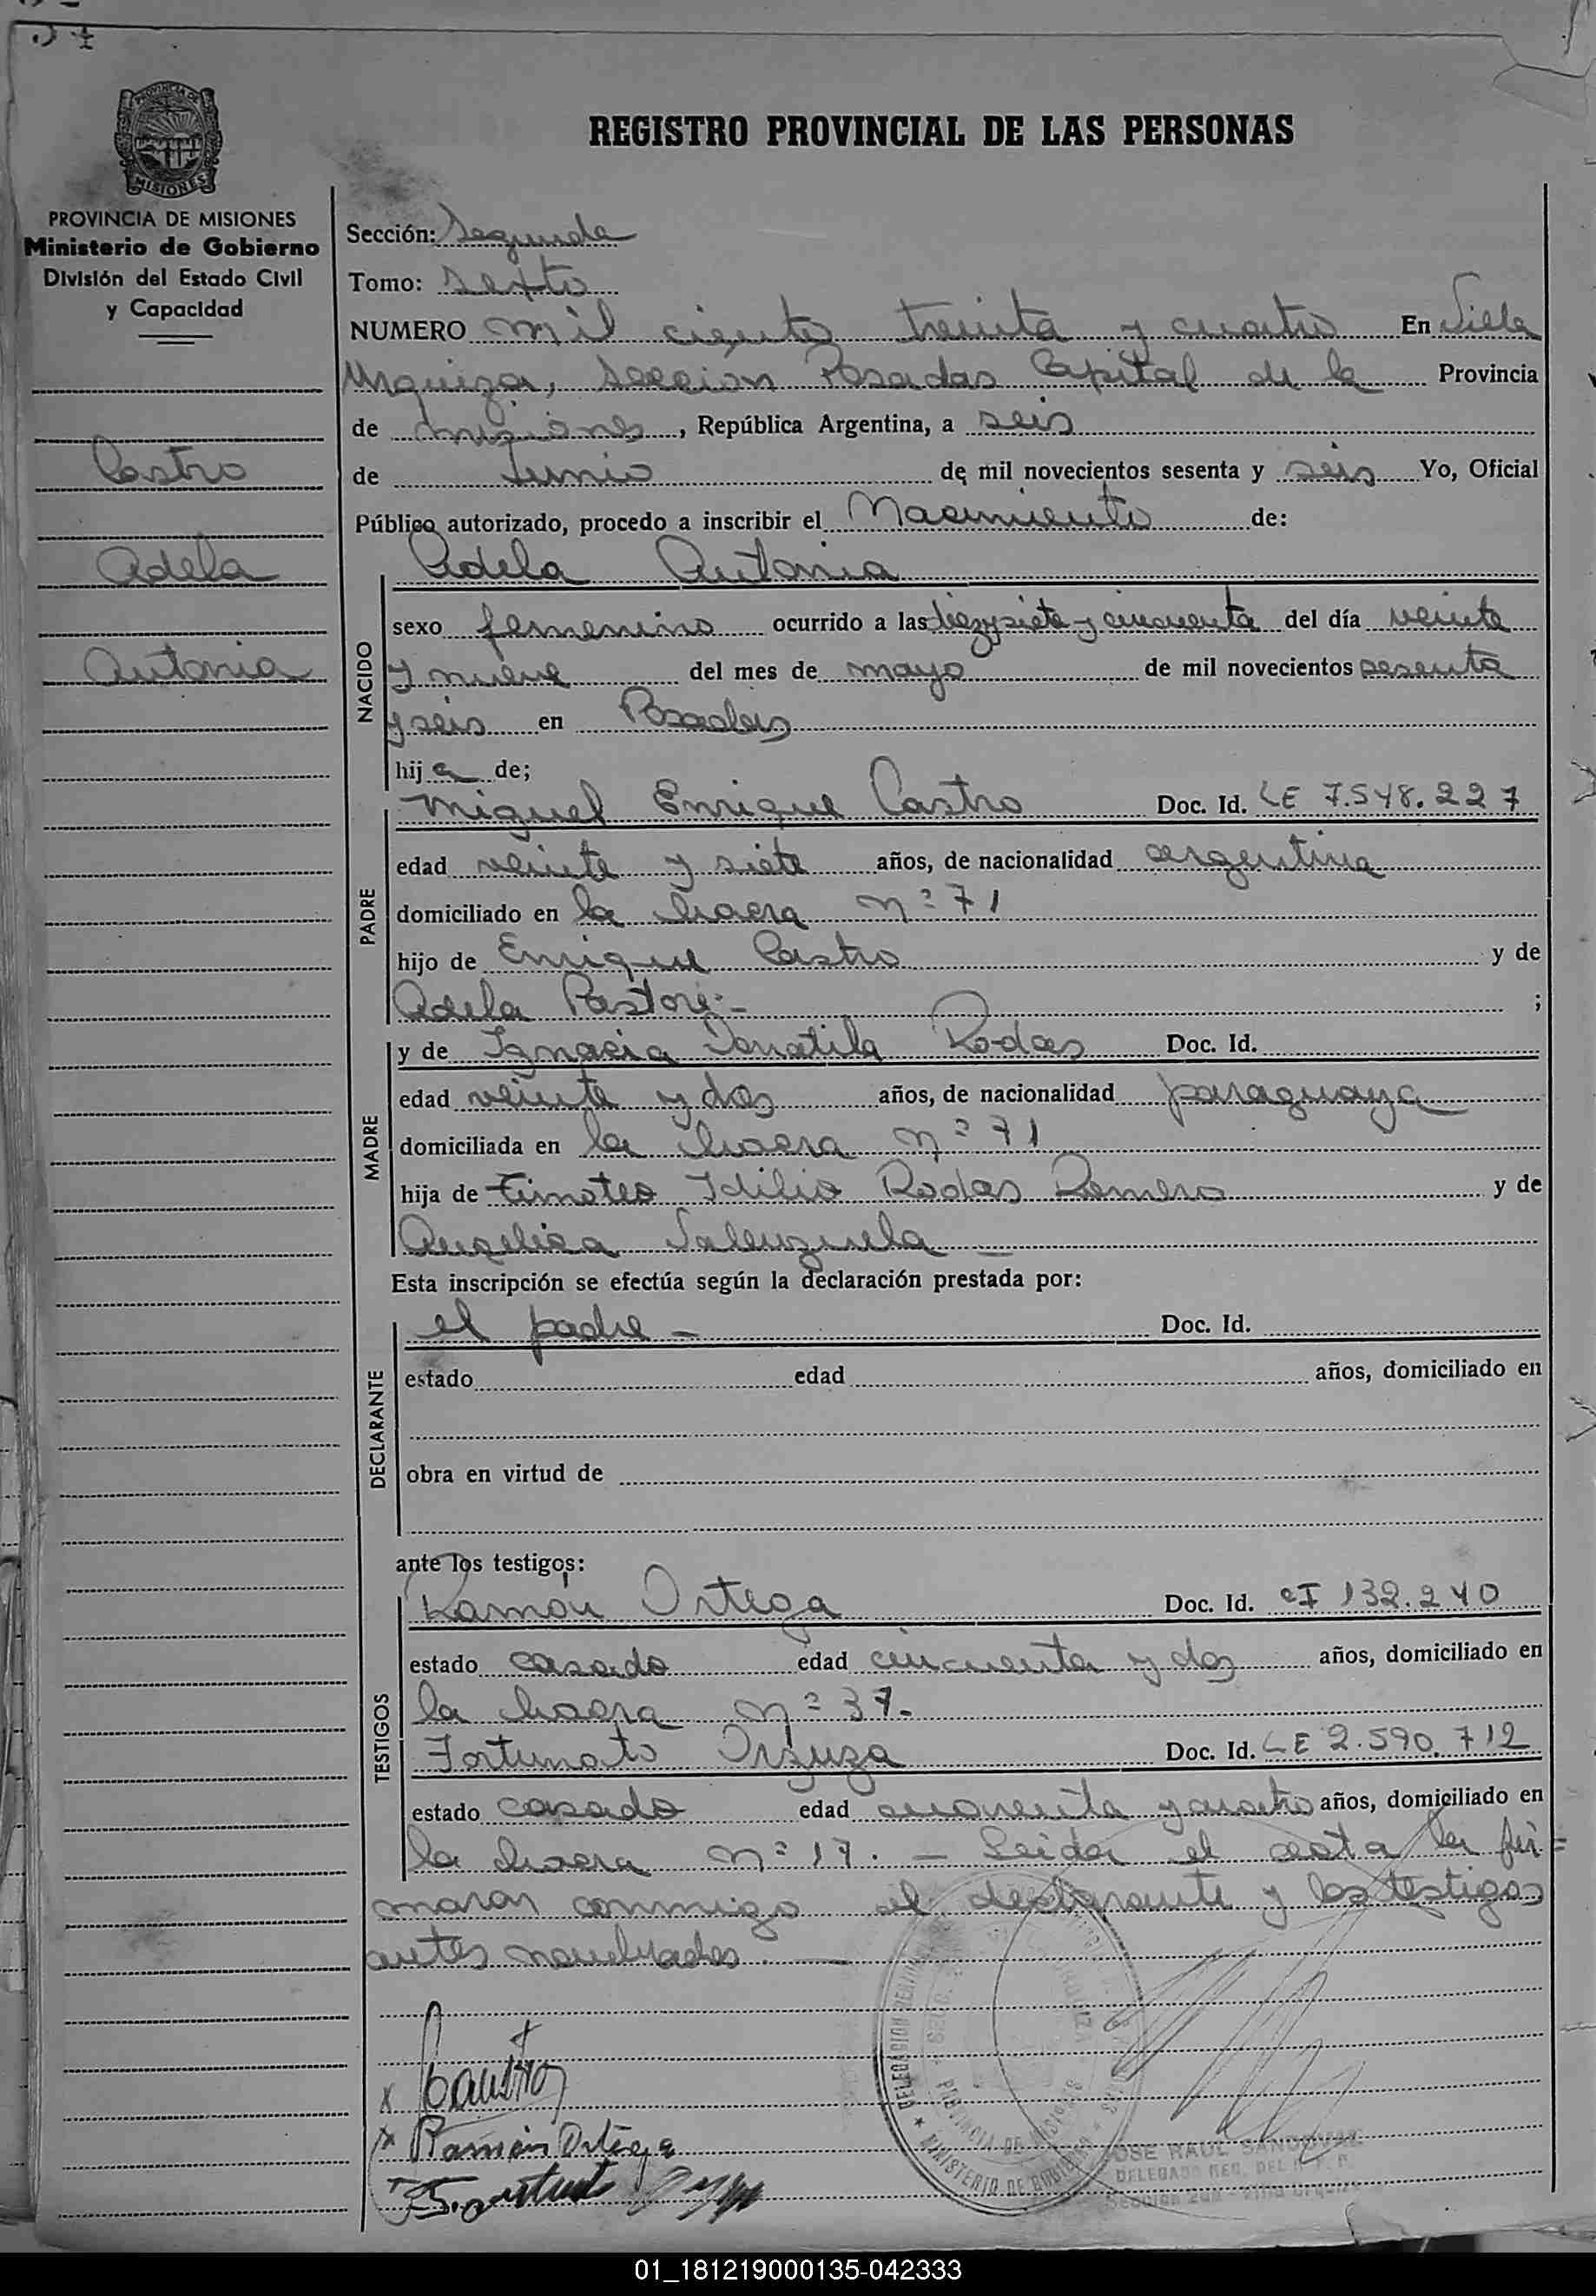 REGISTRO PROVINCIAL DE LAS PERSONAS
PROVINCIA DE MISIONES
MISIONES
PROVINCIA DE MISIONES
Ministerio de Gobierno
División del Estado Civil
y Capacidad
Castro
Adela
Antonia
Sección: Segunda
Tomo: Sexto
NUMERO mil ciento treinta y cuatro En Villa
Urquiza, Seccion Posadas Capital de la Provincia
de Misiones, República Argentina, a seis
de Junio de mil novecientos sesenta y seis Yo, Oficial
Público autorizado, procedo a inscribir el Nacimiento de:
Adela Antonia
NACIDO
sexo femenino ocurrido a las diezysiete y cincuenta del día veinte
y nueve del mes de mayo de mil novecientos sesenta
y seis en Posadas
hija de;
PADRE
Miguel Enrique Castro Doc. Id. LE 7.548.227
edad veinte y siete años, de nacionalidad argentina
domiciliado en la chacra nº 71
hijo de Enrique Castro y de
Adela Pastori.- ;
MADRE
y de Ignacia Donatila Rodas Doc. Id.
edad veinte y dos años, de nacionalidad paraguaya
domiciliada en la chacra nº 71
hija de Timoteo Idilio Rodas Romero y de
Angelica Valenzuela —
Esta inscripción se efectúa según la declaración prestada por:
DECLARANTE
el padre - Doc. Id.
estado edad años, domiciliado en
obra en virtud de
ante los testigos:
TESTIGOS
Ramón Ortega Doc. Id. CI 132.240
estado casado edad cincuenta y dos años, domiciliado en
la chacra nº 37.
Fortunato Orzuza Doc. Id. LE 2.590.712
estado casado edad cuarenta y cuatro años, domiciliado en
la chacra nº 17. — Leida el acta la fir=
maron conmigo el declarante y los testigos
antes nombrados. —
x Castro
x Ramón Ortega
MINISTERIO DE GOBIERNO
PROVINCIA DE MISIONES
JOSE RAUL SANDOVAL
DELEGADO REG. DEL R. P. P.
Sección 2da - Villa Urquiza
01_181219000135-042333